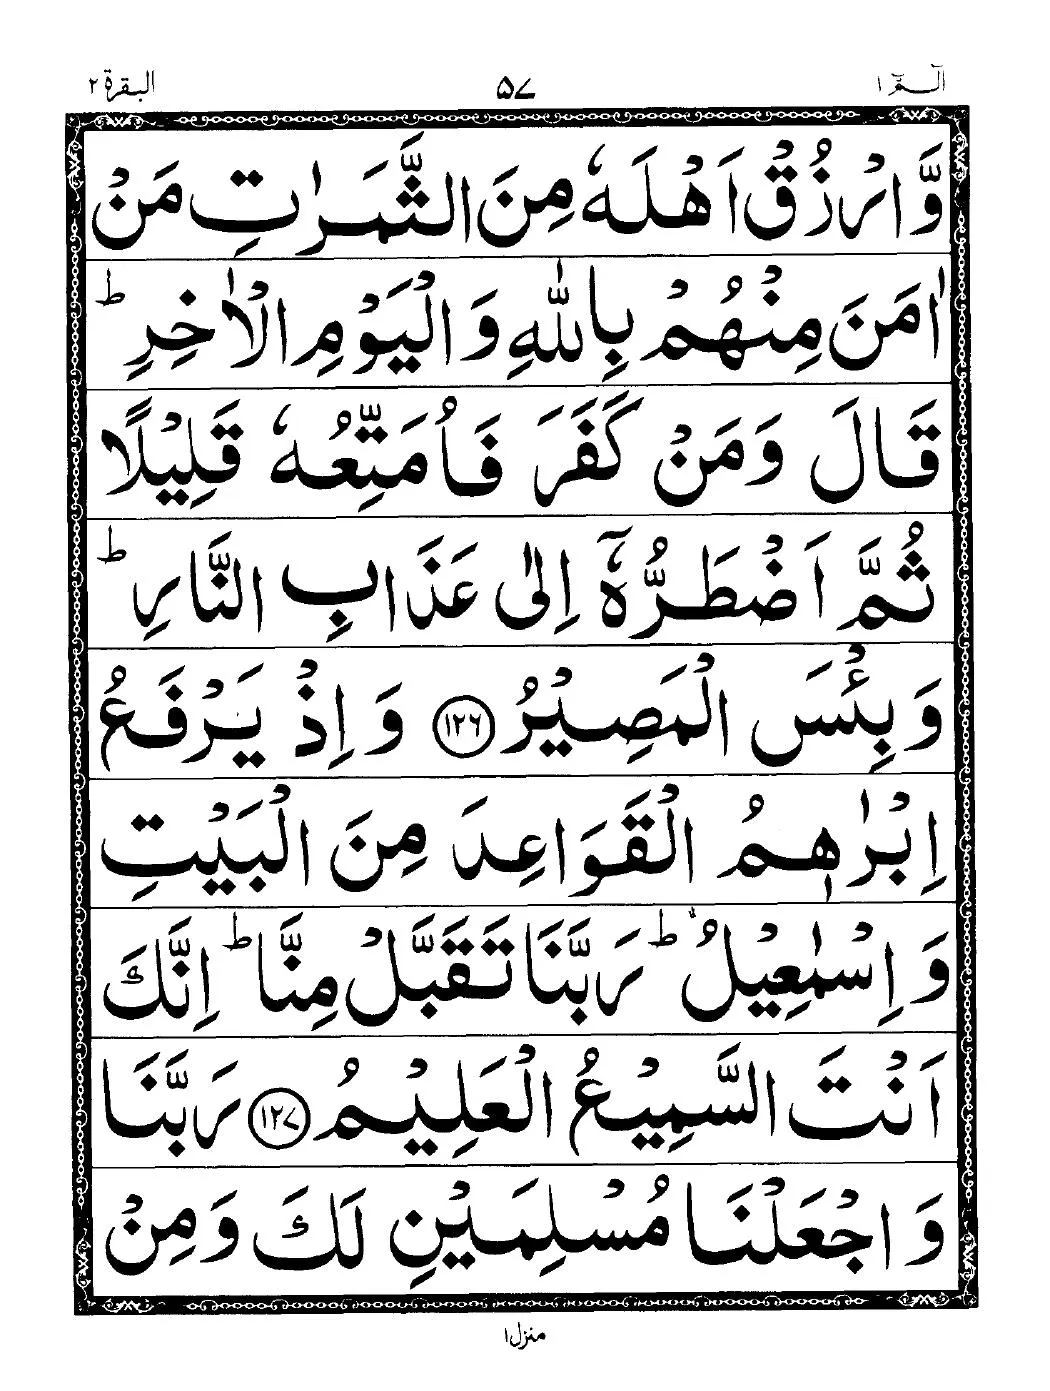 الٓـمّٓ ۱ ۵۷ البقرة ۲
وَّارْزُقْ اَهْلَهٗ مِنَ الثَّمَرٰتِ مَنْ
اٰمَنَ مِنْهُمْ بِاللّٰهِ وَالْيَوْمِ الْاٰخِرِ ؕ
قَالَ وَمَنْ كَفَرَ فَاُمَتِّعُهٗ قَلِيْلًا
ثُمَّ اَضْطَرُّهٗۤ اِلٰى عَذَابِ النَّارِ ؕ
وَبِئْسَ الْمَصِيْرُ ﴿۱۲۶﴾ وَاِذْ يَرْفَعُ
اِبْرٰهٖمُ الْقَوَاعِدَ مِنَ الْبَيْتِ
وَاِسْمٰعِيْلُ ؕ رَبَّنَا تَقَبَّلْ مِنَّا ؕ اِنَّكَ
اَنْتَ السَّمِيْعُ الْعَلِيْمُ ﴿۱۲۷﴾ رَبَّنَا
وَاجْعَلْنَا مُسْلِمَيْنِ لَكَ وَمِنْ
منزل ۱